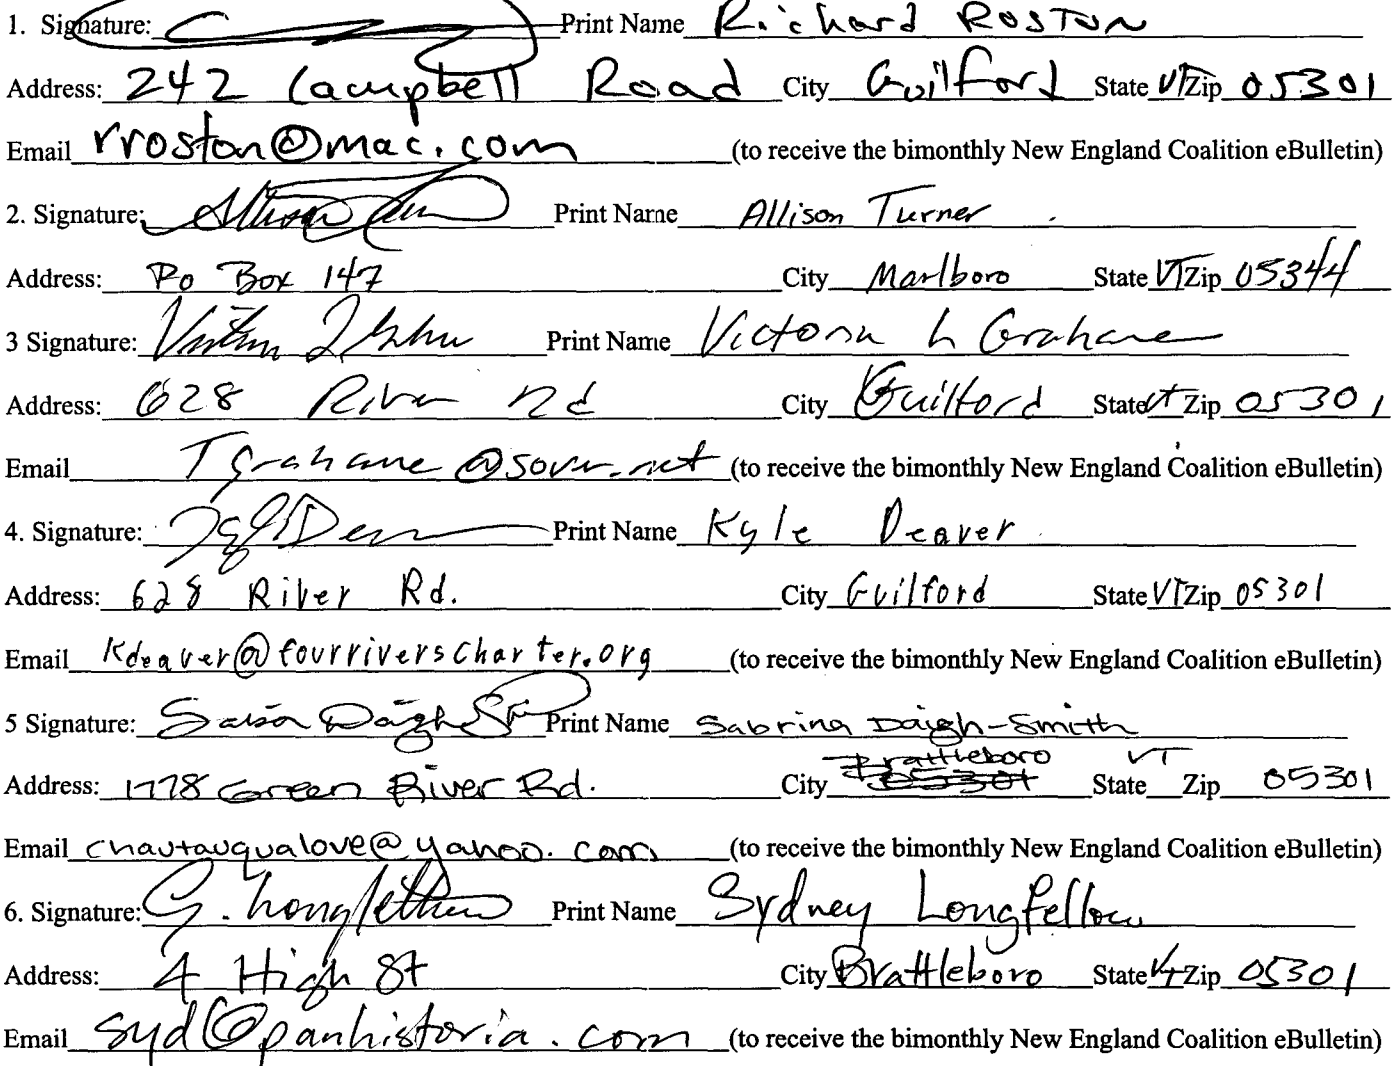 1. Signature: Print Name Richard Roston
Address: 242 Campbell Road City Guilford State VT Zip 05301
Email rroston@mac.com (to receive the bimonthly New England Coalition eBulletin)
2. Signature: Allison Turner Print Name Allison Turner
Address: Po Box 147 City Marlboro State VT Zip 05344
3 Signature: Print Name Victoria L Grahame
Address: 628 River Rd City Guilford State VT Zip 05301
Email Tgrahame@sover.net (to receive the bimonthly New England Coalition eBulletin)
4. Signature: Print Name Kyle Deaver
Address: 628 River Rd. City Guilford State VT Zip 05301
Email Kdeaver@fourriverscharter.org (to receive the bimonthly New England Coalition eBulletin)
5 Signature: Print Name Sabrina Daigh-Smith
Address: 1778 Green River Rd. City Brattleboro State VT Zip 05301
Email chautauqualove@yahoo.com (to receive the bimonthly New England Coalition eBulletin)
6. Signature: Print Name Sydney Longfellow
Address: 4 High St City Brattleboro State VT Zip 05301
Email syd@panhistoria.com (to receive the bimonthly New England Coalition eBulletin)